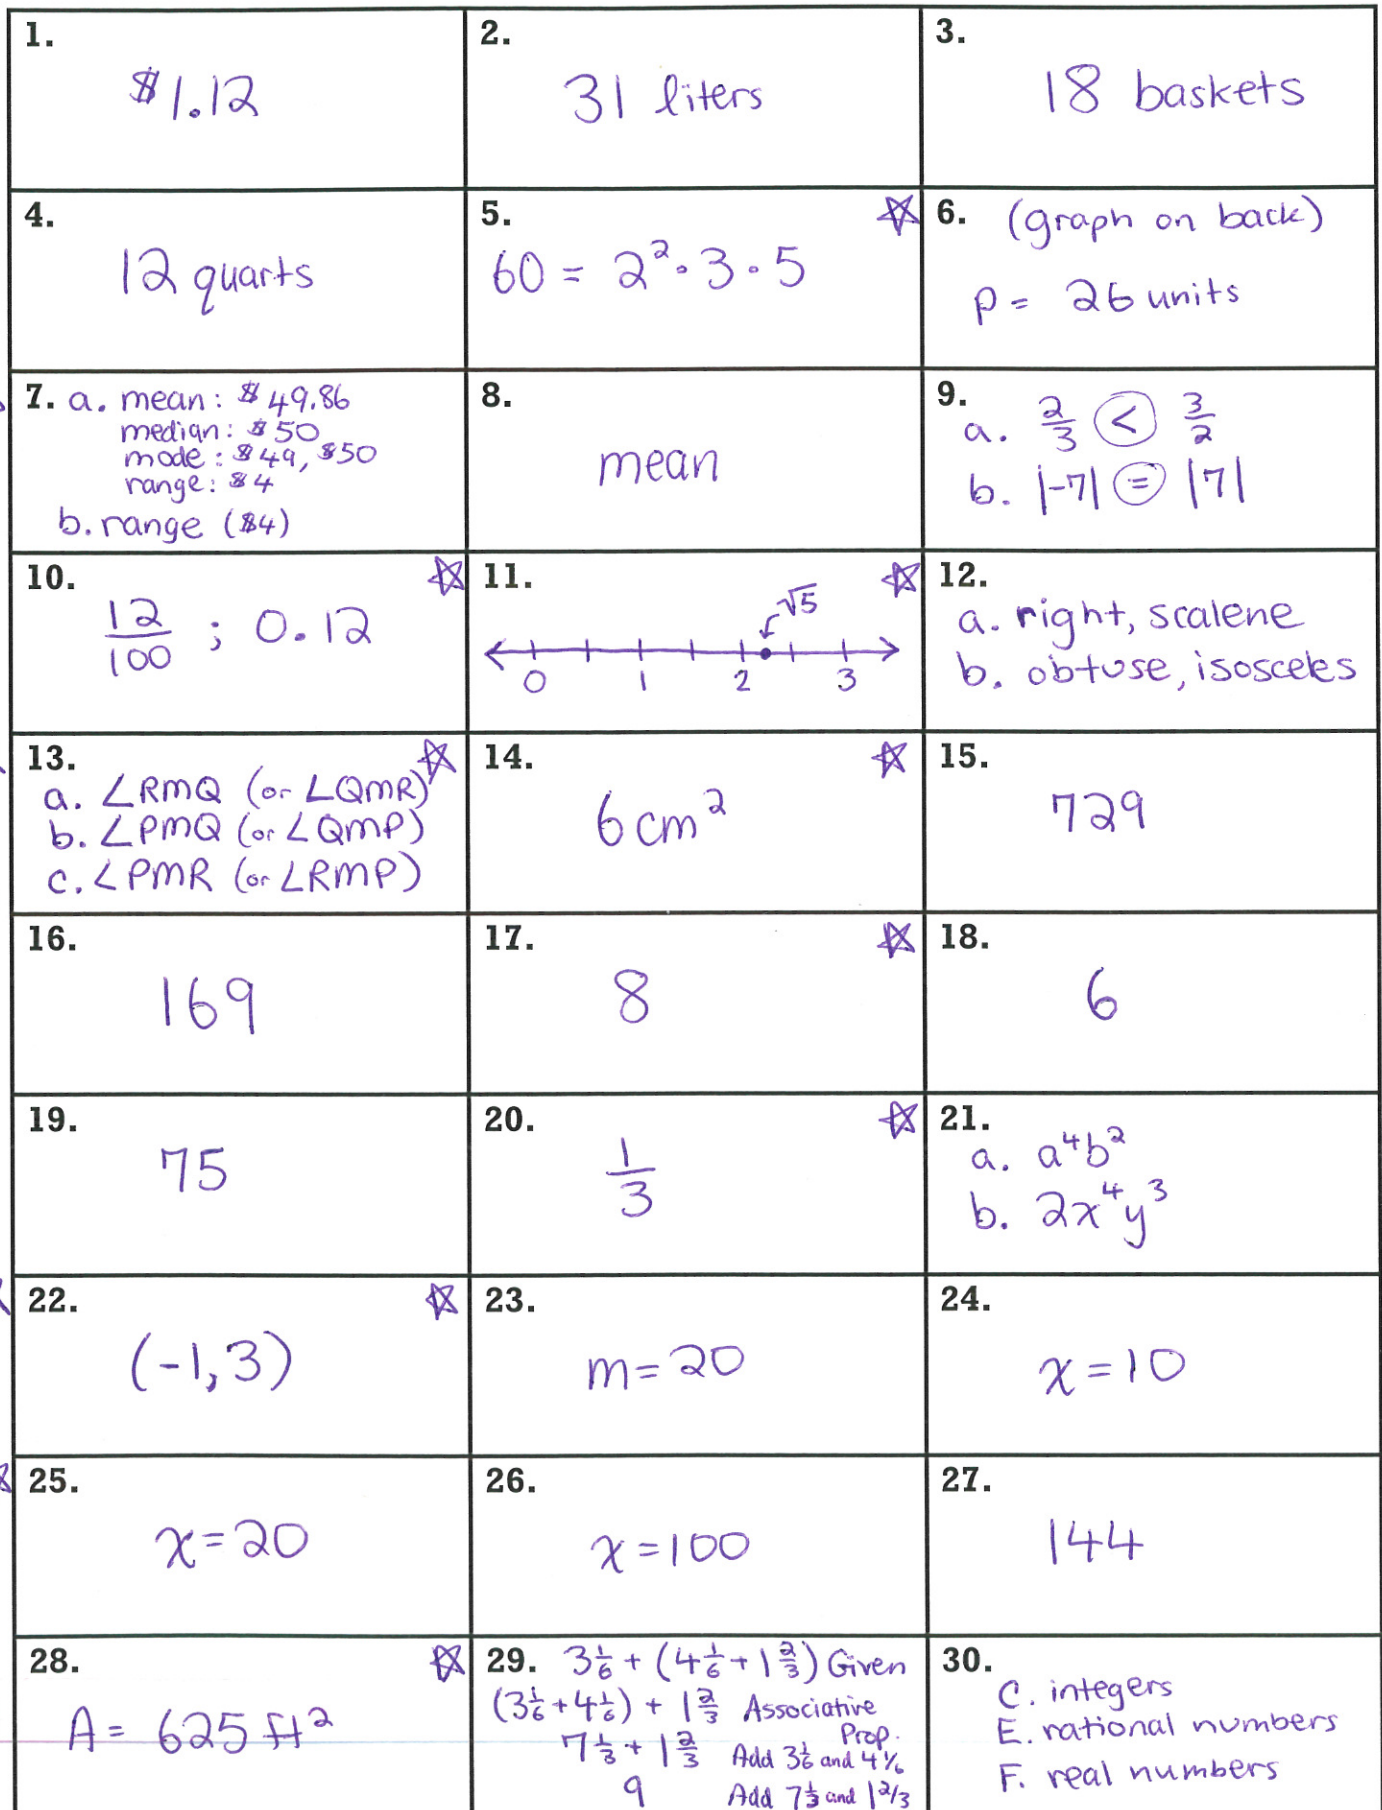 1.
$1.12
2.
31 liters
3.
18 baskets
4.
12 quarts
5.
60 = 2²·3·5
6. (graph on back)
p = 26 units
7. a. mean: $49.86
median: $50
mode: $49, $50
range: $4
b. range ($4)
8.
mean
9.
a. 2/3 < 3/2
b. |-7| = |7|
10.
12/100 ; 0.12
11.
√5
0 1 2 3
12.
a. right, scalene
b. obtuse, isosceles
13.
a. ∠RMQ (or ∠QMR)
b. ∠PMQ (or ∠QMP)
c. ∠PMR (or ∠RMP)
14.
6 cm²
15.
729
16.
169
17.
8
18.
6
19.
75
20.
1/3
21.
a. a⁴b²
b. 2x⁴y³
22.
(-1,3)
23.
m = 20
24.
x = 10
25.
x = 20
26.
x = 100
27.
144
28.
A = 625 ft²
29. 3 1/6 + (4 1/6 + 1 2/3) Given
(3 1/6 + 4 1/6) + 1 2/3 Associative Prop.
7 1/3 + 1 2/3 Add 3 1/6 and 4 1/6
9 Add 7 1/3 and 1 2/3
30.
C. integers
E. rational numbers
F. real numbers